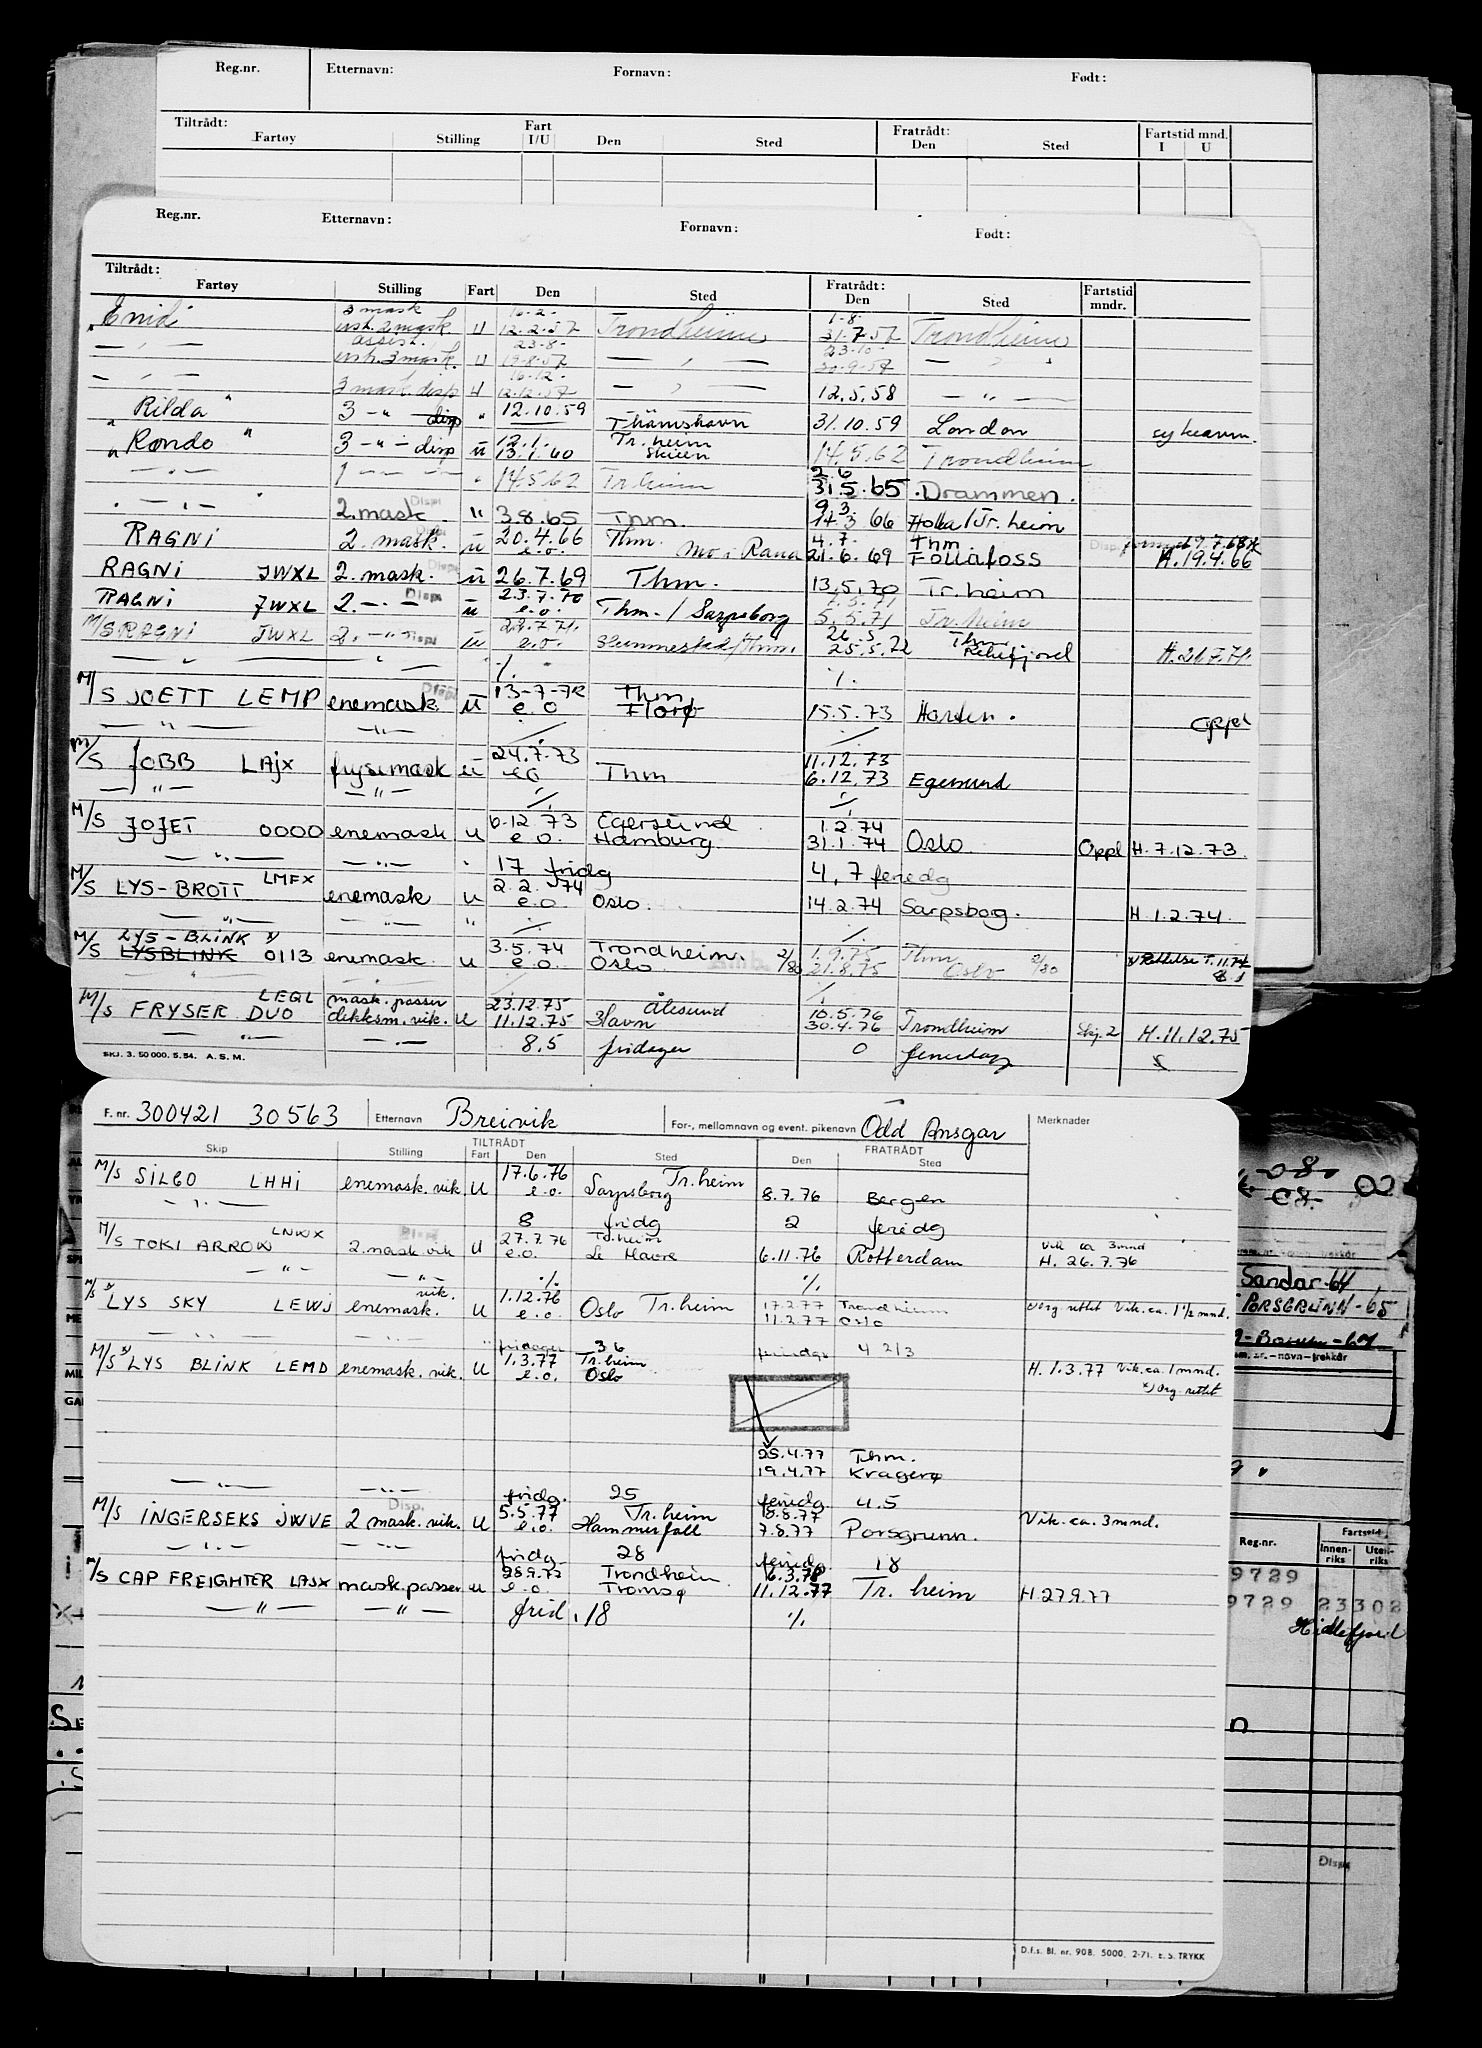 Reg.nr. Etternavn: Fornavn: Født:
Tiltrådt: Fart Fratrådt: Fartstid mnd.
Fartøy Stilling I/U Den Sted Den Sted I U
Reg.nr. Etternavn: Fornavn: Født:
Tiltrådt: Fratrådt: Fartstid
Fartøy Stilling Fart Den Sted Den Sted mndr.
3 mask 16.2. 1.8.
Enid 2 mask. U 12.2.57 Trondheim 31.7.57 Trondheim
assist. 23.8. 23.10
— " — 3 mask. U 19.8.57 — " — 30.9.57 — " —
16.12.
— " — 3 mask. disp U 12.12.57 — " — 12.5.58 — " —
" Rilda " 3 — " — disp " 12.10.59 Thamshavn 31.10.59 London
12.1. Tr.heim
" Rondo " 3 — " — disp u 13.1.60 Skien 14.5.62 Trondheim
2.6
— " — 1 — " — " 14.5.62 Tr.heim 31.5.65 Drammen.
Displ 9.3.
" — " — " 2. mask. " 3.8.65 Thm. 14.3 66 Holla / Tr.heim
4.7. Thm
RAGNI 2. mask. u 20.4.66 e.o. Thm. Mo i Rana 21.6.69 Follafoss H.19.4.66
RAGNI JWXL 2. mask. u 26.7.69 Thm. 13.5.70 Tr.heim
Displ 23.7.70
RAGNI JWXL 2. — " — u e.o. Thm. / Sarpsborg 5.5.71 Tr.heim
29.7.71. 26.5 Thm
M/S RAGNI JWXL 2. — " — Displ u e.o. Slemmestad/Thm. 25.5.72 H.21.7.71.
— " — " ./. ./.
Displ 13-7-72 Thm
M/S JOETT LEMP enemask. u e.o Florø 15.5.73 Horten. oppl
— " — — " — ./. ./.
24.7.73 11.12.73
M/S JOBB LAJX frysemask u e.o Thm 6.12.73 Egersund
— " — — " — ./. ./.
6.12 73 Egersund 1.2.74
M/S JOJET OOOO enemask u e.o. Hamburg. 31.1.74 Oslo. Oppl H.7.12.73.
— " — — " — " 17 fridg 4,7 feriedg
LMFX 2.2.74
M/S LYS-BROTT enemask u e.o. Oslo. 14.2.74 Sarpsborg. H.1.2.74.
— " — — " — " ./. ./.
LYS-BLINK x) 3.5.74 Trondheim. 1.9.75 Thm
M/S LYSBLINK 0113 enemask. u e.o. Oslo. 2/80 21.8.75 Oslo 2/80 x) Rettelse
" ./. ./.
LEGL mask.passer 23.12.75 Ålesund 10.5.76
M/S FRYSER DUO dekksm. vik. u 11.12.75 Havn 30.4.76 Trondheim Skj.2 H.11.12.75
— " — — " — 8.5 fridager 0 feriedag
SKJ. 3. 50 000. 5.54. A.S.M.
F. nr. 300421 30563 Etternavn Breivik For-, mellomnavn og event. pikenavn Odd Ansgar Merknader
TILTRÅDT FRATRÅDT
Skip Stilling Fart Den Sted Den Sted
17.6.76 Tr.heim
M/S SILGO LHHI enemask. vik. u e.o. Sarpsborg 8.7.76 Bergen
— " — 8 fridg 2 feriedg
LNWX 27.7.76 Tr.heim Vik ca 3 mnd
M/S TOKI ARROW 2. mask. vik u e.o. Le Havre 6.11.76 Rotterdam H. 26.7.76
— " — — " — ./. ./.
vik. 1.12.76
M/S x) LYS SKY LEWJ enemask. u e.o. Oslo Tr.heim 17.2.77 11.2.77 Trondheim Oslo x) org rettet Vik.ca. 1 1/2 mnd.
— " — — " — " fridager 36 feriedgr 4 2/3
M/S x) LYS BLINK LEMD enemask. vik. u 1.3.77 e.o. Tr.heim Oslo H. 1.3.77 Vik.ca. 1 mnd.
x) org. rettet
25.4.77 Thm.
19.4.77 Kragerø
— " — — " — fridg. 25 feriedg. 4.5
Disp. 5.5.77 Tr.heim 10.8.77
M/S INGERSEKS JWVE 2 mask. vik. u e.o. Hammerfall 7.8.77 Porsgrunn. Vik. ca. 3 mnd.
— " — — " — fridg 28 feriedg 18
28.9.77 Trondheim 6.3.78
M/S CAP FREIGHTER LAJX mask.passer u e.o. Tromsø 11.12.77 Tr. heim H.27.9.77
— " — — " — frid. 18 ./.
D.f.s. Bl. nr. 908. 5000. 2-71. E.S. TRYKK
Sandar-64
PORSGRUNN-65
navn-trekkår
Fartstid
Reg.nr. Innen-riks Uten-riks
9729
9729 23302
Displ